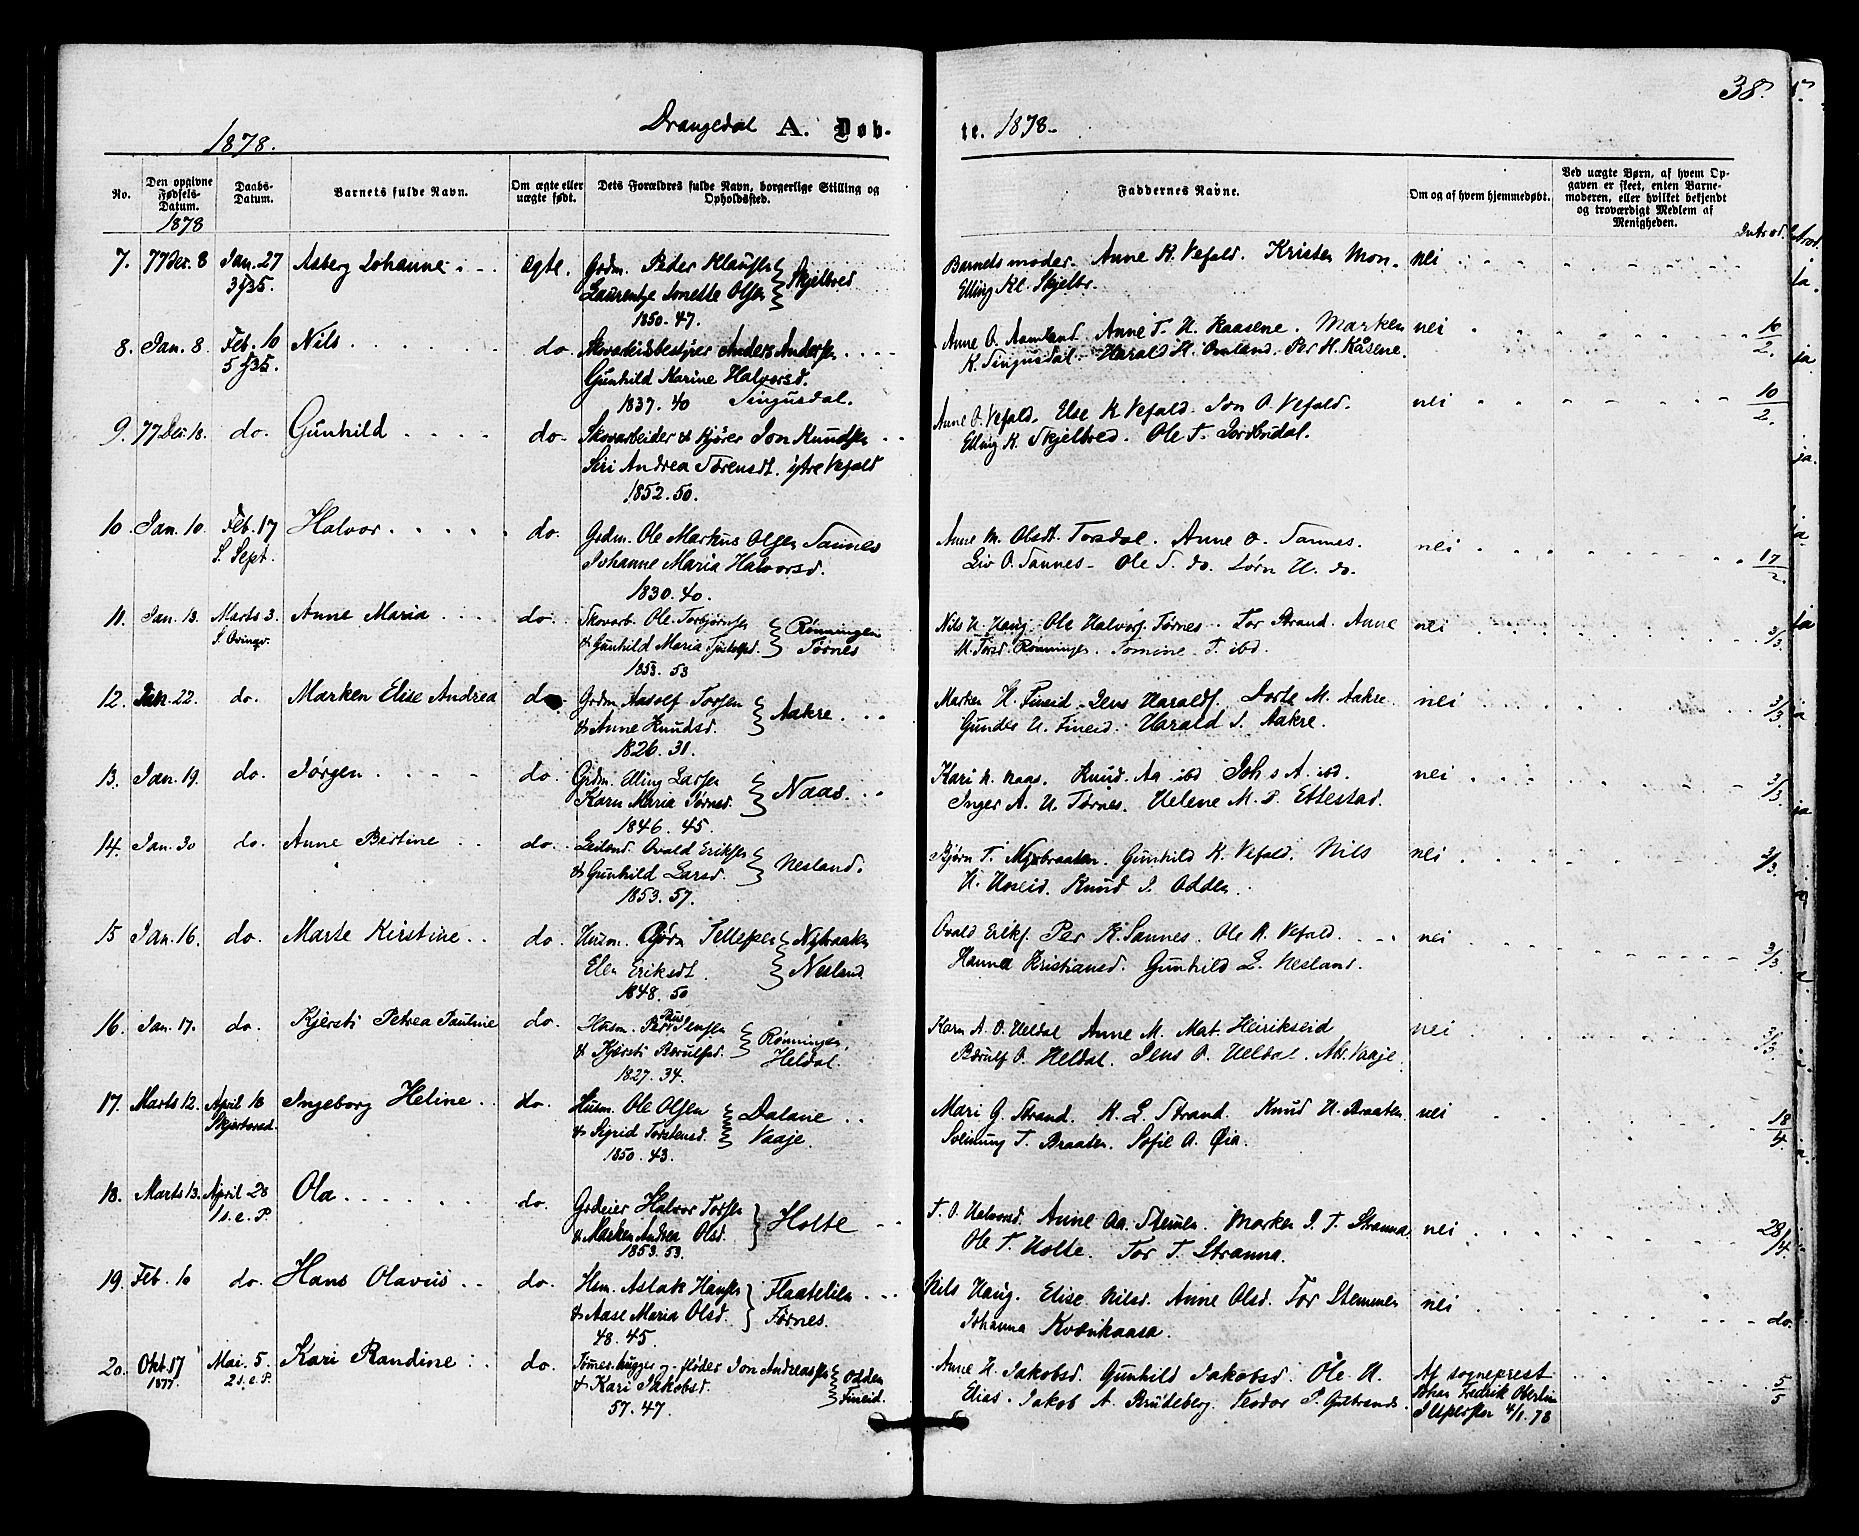 1878.
Drangedal A. Døb-
te. 1878.
38.
No.
Den opgivne Fødsels-Datum.
1878
Daabs-Datum.
Barnets fulde Navn.
Om ægte eller uægte født.
Dets Forældres fulde Navn, borgerlige Stilling og Opholdssted.
Faddernes Navne.
Om og af hvem hjemmedøbt.
Ved uægte Børn, af hvem Opgaven er skeet, enten Barnemoderen, eller hvilket bekjendt og troværdigt Medlem af Menigheden.
Introd.
7. 77 Dec. 8 Jan. 27 Asberg Johanne ægte. Grdm. Peder Klausen Skjelbred Barnets moder. Anne K. Vefald. Kristen Mon- nei
Laurentze Tonette Olsen Elling Kl. Skjelbr.
1850. 47.
8. Jan. 8. Feb. 10 Nils do. Skovarbeidsbestyrer Anders Andersen Anne O. Aamland Anne T. H. Kaasene. Marken nei 10/2.
Gunhild Karine Halvorsd. K. Tingusdal. Harald H. Omland. Per H. Kåsene.
1837. 40 Tingusdal.
9. 77 Dec. 18. do. Gunhild do. Skovarbeider & kjører Jon Knudsen Anne O. Vefald. Else K. Vefald. Jon O. Vefald. nei 10/2.
Siri Andrea Sørensdt. ytre Vefald Elling K. Skjelbred. Ole T.
1852. 50.
10. Jan. 10. Feb. 17 Halvor do. Grdm. Ole Markus Olsen Sannes Anne M. Olsdt. Torsdal. Anne O. Sannes. nei 17/2.
S. Sept. Johanne Maria Halvorsd. Liv O. Sannes. Ole T. do. Jørn H. do.
1830. 40.
11. Jan. 13. Marts 3. Anne Maria do. Skovarb. Ole Torbjørnsen Rønningen Nils H. Haug. Ole Halvors. Tørnes. Tor Strand. Anne nei 3/3.
& Gunhild Maria Tørnes M. Torsd. Rønningen. Tomine T. ibd.
1853. 53
12. Jan. 22. do. Marken Elise Andrea do. Grdm. Aasolf Torsen Aakre. Marken H. Fineid. Jens Haralds. Dorte M. Aakre. nei 3/3.
& Anne Knudsd. Gunder H. Fineid. Harald J. Aakre.
1826. 31.
13. Jan. 19. do. Jørgen do. Grdm. Elling Larsen Naas. Kari K. Naas. Knud. Aa. ibd. Johs A. ibd. nei 3/3.
Karen Maria Inger A. H. Tørnes. Helene M. P. Ettestad.
1846. 45.
14. Jan. 30 do. Anne Bertine do. Leilend. Ovald Eriksen Nesland. Bjørn T. Nybraaten. Gunhild K. Vefald. Nils nei 3/3.
& Gunhild Larsd. H. Knud J. Odden.
1853. 57.
15 Jan. 16. do. Marte Kirstine do. Husm. Bjørn Tellefsen Nybraaten Ovald Eriks. Per K. Sannes. Ole K. Vefald. nei 3/3.
Elen Eriksdt. Nesland Hanna Kristiansd. Gunhild L. Nesland.
1848. 50
16. Jan. 17. do. Kjersti Petrea Pauline do. Husm. Per Jensen Rønningen, Karen A. O. Heldal Anne M. Mat. Heirikseid nei 3/3.
& Kjersti Berulfsd. Heldal. Bærulf O. Heldal. Jens O. Heldal. Vaaje.
1827. 34.
17. Marts 12. April 18 Ingeborg Heline do. Husm. Ole Olsen Dalane Mari G. Strand. K. L. Strand. Knud H. Braaten. nei 18/4.
Skjærtorsd. & Sigrid Torstensd. Vaaje. Sveinung T. Braaten. Sofie A. Øia.
1850. 43.
18. Marts 13. April 28 Ola do. Grdeier Halvor Torsen Holte T. O. Anne Aa. Stemmen. Marken J. T. Stranna nei 28/4.
1 s. e. P. & Marken Andrea Olsd. Ole T. Holte. Tor T. Stranna.
1853. 53.
19. Feb. 10 do. Hans Olavus do. Hsm. Aslak Hansen Flaatelien Nils Haug. Elise Nilsd. Anne Olsd. Tor Stemmen nei do.
& Aase Maria Olsd. Tørnes. Johanna Kvænkaasa.
48. 45.
20. Okt. 17 Mai. 5. Kari Randine do. Tømmerhugger og fløder Jon Andreassen Odden Anne H. Jakobsd. Gunhild Jakobsd. Ole H. Af sogneprest 5/5
1877. 2 s. e. P. & Kari Jakobsd. Fineid. Elias. Jakob A. Brudeberg. Teodor P. Johan Fredrik Oberlin
57. 47. 4/1. 78